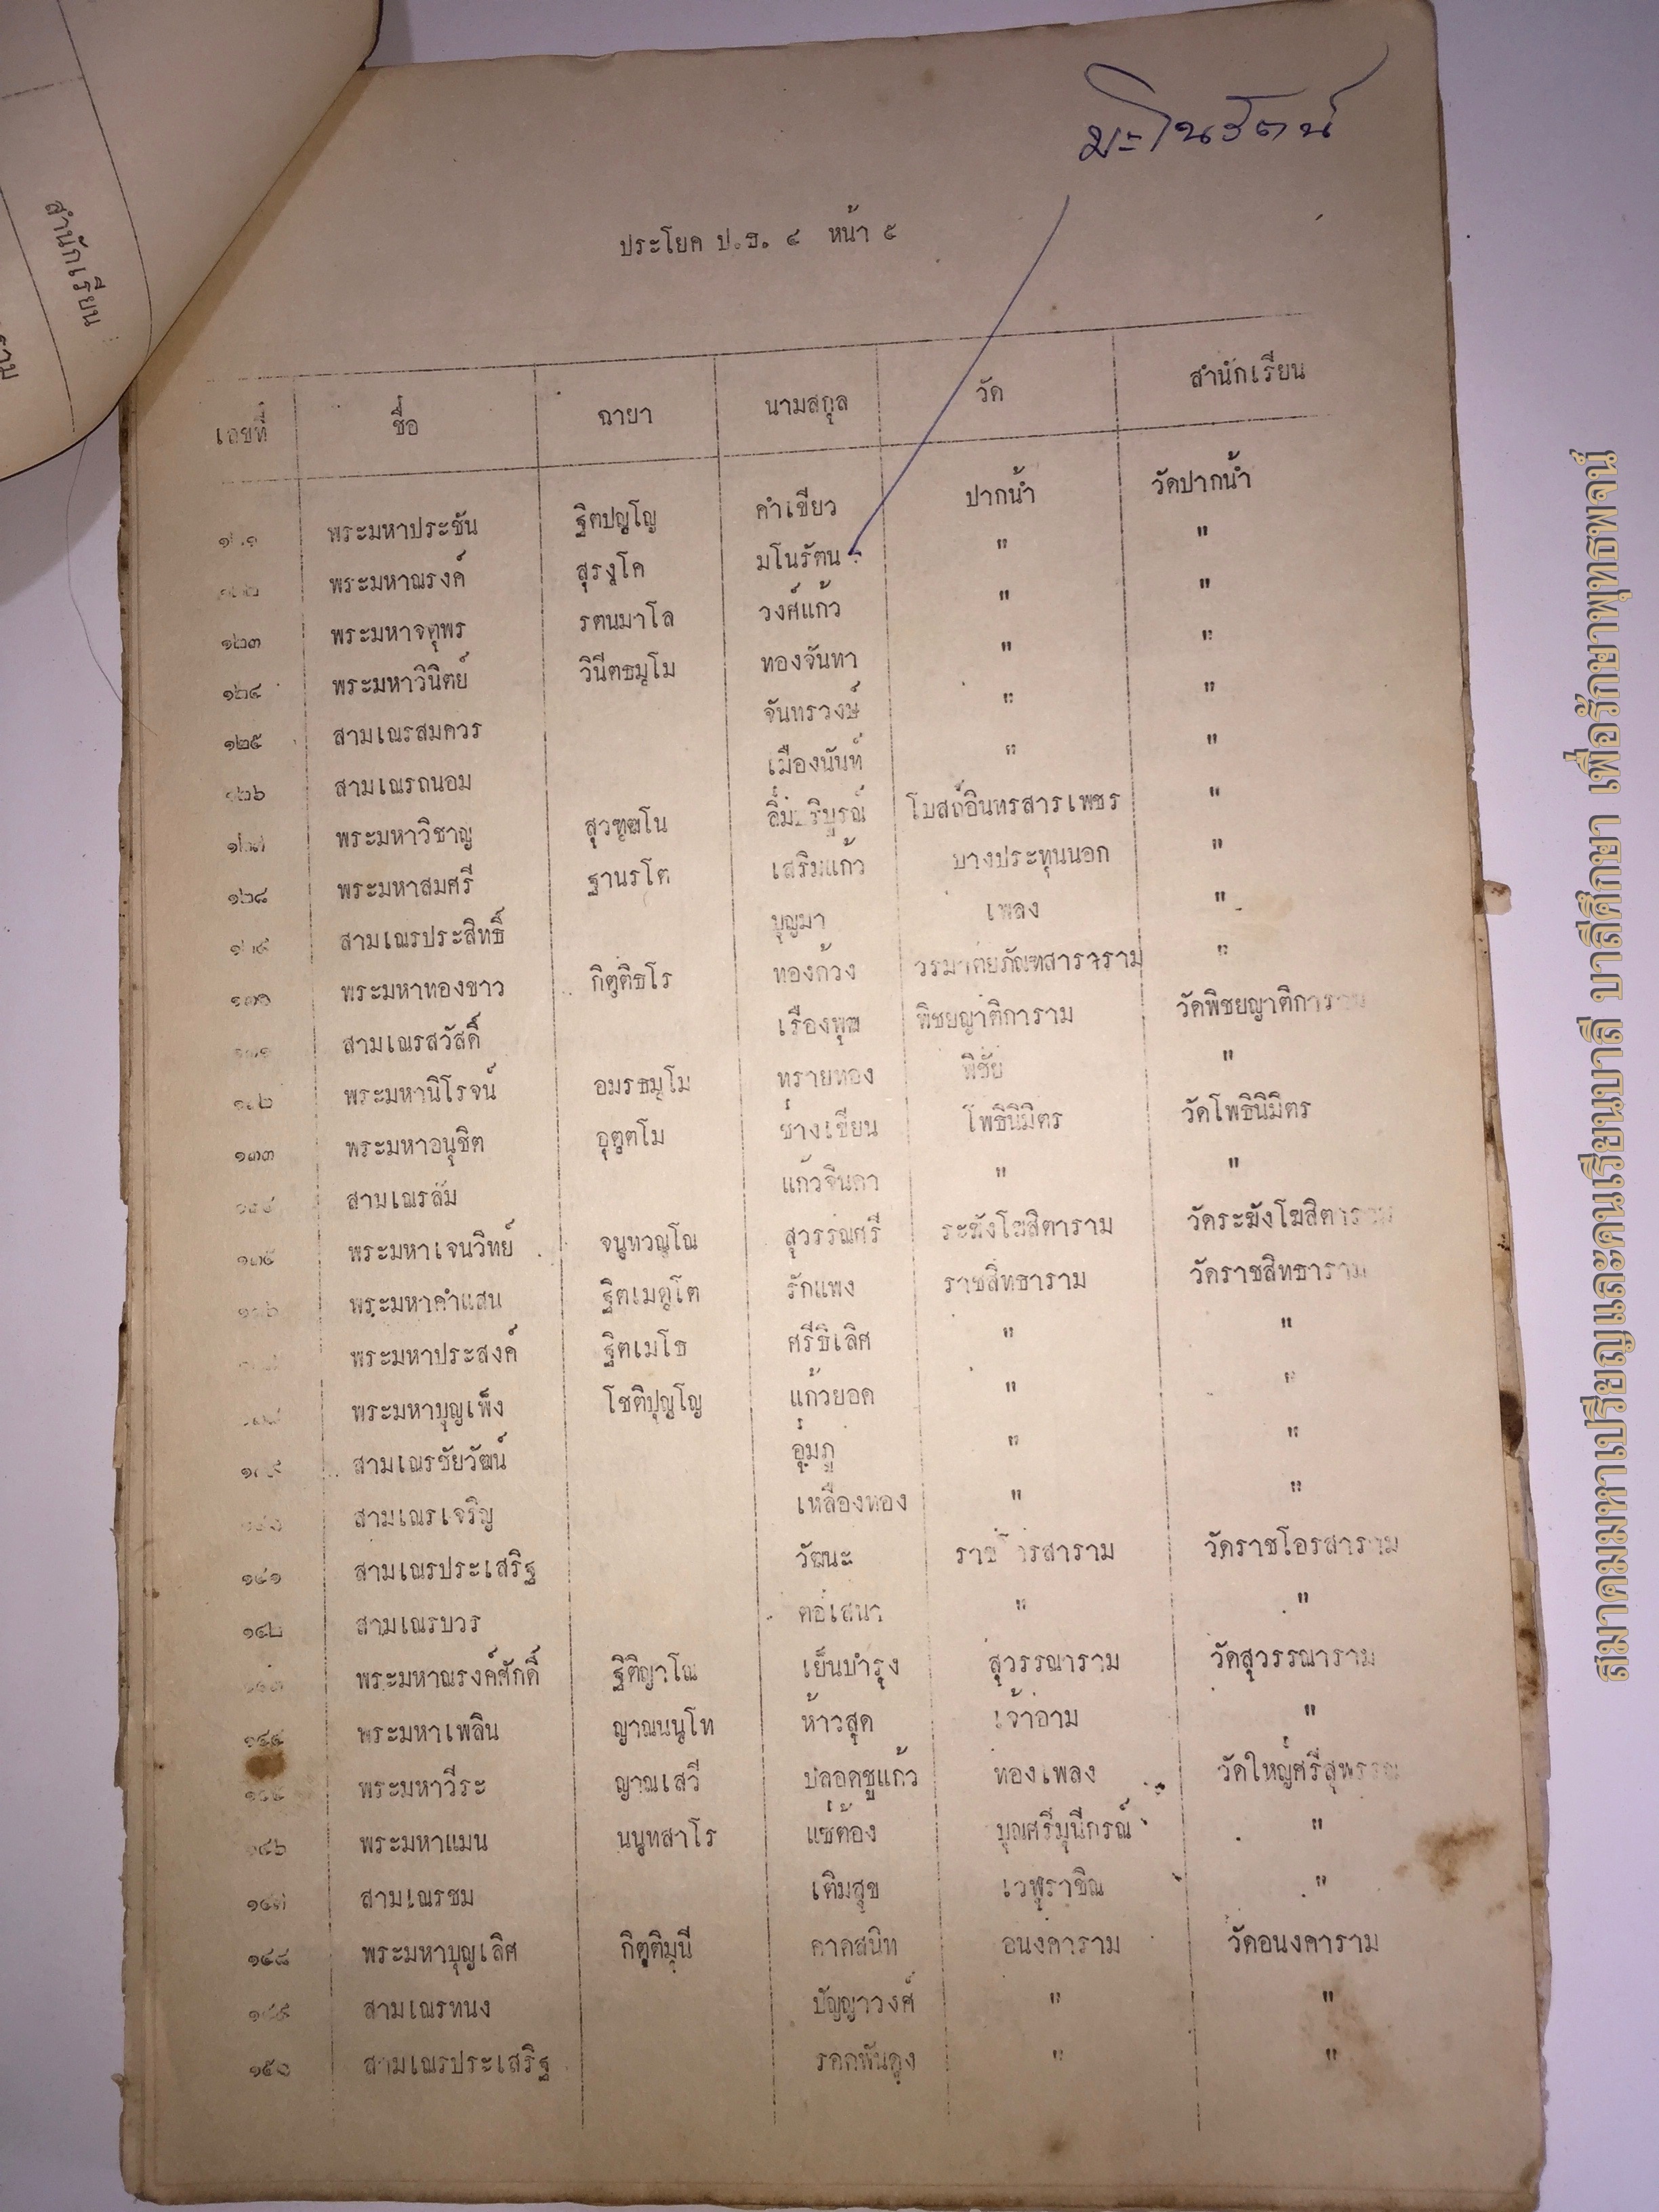 มะโนรัตน์
ประโยค ป.ธ. ๔ หน้า ๕
สำนักเรียน
เลขที่ ชื่อ ฉายา นามสกุล วัด สำนักเรียน
พระมหาประชัน ฐิตปญฺโญ คำเขียว ปากน้ำ วัดปากน้ำ
พระมหาณรงค์ สุรงฺโค มโนรัตน " "
๑๒๓ พระมหาจตุพร รตนมาโล วงศ์แก้ว " "
๑๒๔ พระมหาวินิตย์ วินีตธมฺโม ทองจันทา " "
๑๒๕ สามเณรสมควร จันทรวงษ์ " "
๑๒๖ สามเณรถนอม เมืองนันท์ " "
๑๒๗ พระมหาวิชาญ สุวฑฺฒโน โบสถ์อินทรสารเพชร "
๑๒๘ พระมหาสมศรี ฐานรโต เสริมแก้ว บางประทุนนอก "
สามเณรประสิทธิ์ บุญมา เพลง "
๑๓๐ พระมหาทองขาว กิตฺติธโร ทองด้วง "
สามเณรสวัสดิ์ เรืองพุฒ พิชยญาติการาม วัดพิชยญาติการาม
พระมหานิโรจน์ อมรธมฺโม ทรายทอง พิชัย "
๑๓๓ พระมหาอนุชิต อุตฺตโม ช่างเขียน โพธินิมิตร วัดโพธินิมิตร
สามเณรลัม แก้วจินดา " "
๑๓๕ พระมหาเจนวิทย์ จนฺทวณฺโณ สุวรรณศรี ระฆังโฆสิตาราม วัดระฆังโฆสิตาราม
พระมหาคำแสน ฐิตเมตฺโต รักแพง ราชสิทธาราม วัดราชสิทธาราม
พระมหาประสงค์ ฐิตเมโธ ศรีธิเลิศ " "
พระมหาบุญเพ็ง โชติปุญฺโญ แก้วยอด " "
สามเณรชัยวัฒน์ อุ่มภู " "
สามเณรเจริญ เหลืองทอง " "
๑๔๑ สามเณรประเสริฐ วัฒนะ ราชโอรสาราม วัดราชโอรสาราม
๑๔๒ สามเณรบวร ตอเสนา " "
๑๔๓ พระมหาณรงค์ศักดิ์ ฐิติญาโณ เย็นบำรุง สุวรรณาราม วัดสุวรรณาราม
๑๔๔ พระมหาเพลิน ญาณนนฺโท ห้าวสุด เจ้าอาม "
พระมหาวีระ ญาณเสวี ปลอดชูแก้ว ทองเพลง วัดใหญ่ศรีสุพรรณ
๑๔๖ พระมหาแมน นนฺทสาโร แซ่ต้อง บุณศรีมุนีกรณ์ "
๑๔๗ สามเณรชม เติมสุข เวฬุราชิณ "
๑๔๘ พระมหาบุญเลิศ กิตฺติมุนี คาดสนิท อนงคาราม วัดอนงคาราม
๑๔๙ สามเณรทนง ปัญญาวงศ์ " "
๑๕๐ สามเณรประเสริฐ รอดพันดุง " "
สมาคมมหาเปรียญและคนเรียนบาลี บาลีศึกษา เพื่อรักษาพุทธพจน์